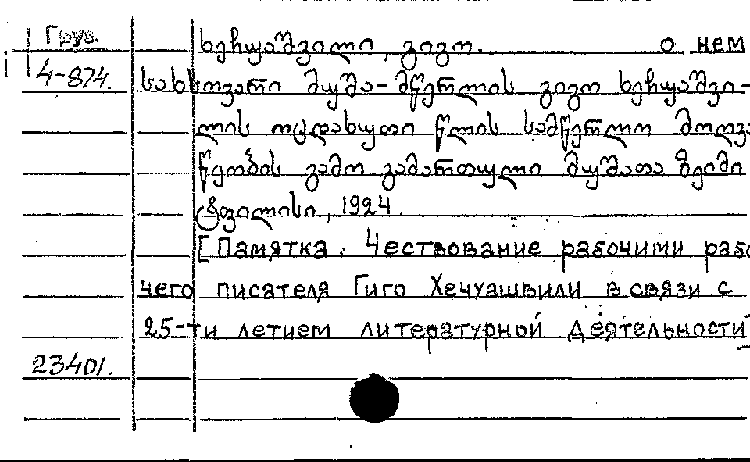 Груз. ხეჩუაშვილი, გიგო. о нем
4-874. სახსოვარი მუშა-მწერლის გიგო ხეჩუაშვი-
ლის ოცდახუთი წლის სამწერლო მოღვა
წეობის გამო გამართული მუშათა ზეიმი
ტფილისი, 1924.
[Памятка. Чествование рабочими рабо
чего писателя Гиго Хечуашвили в связи с
25-ти летием литературной деятельности]
23401.